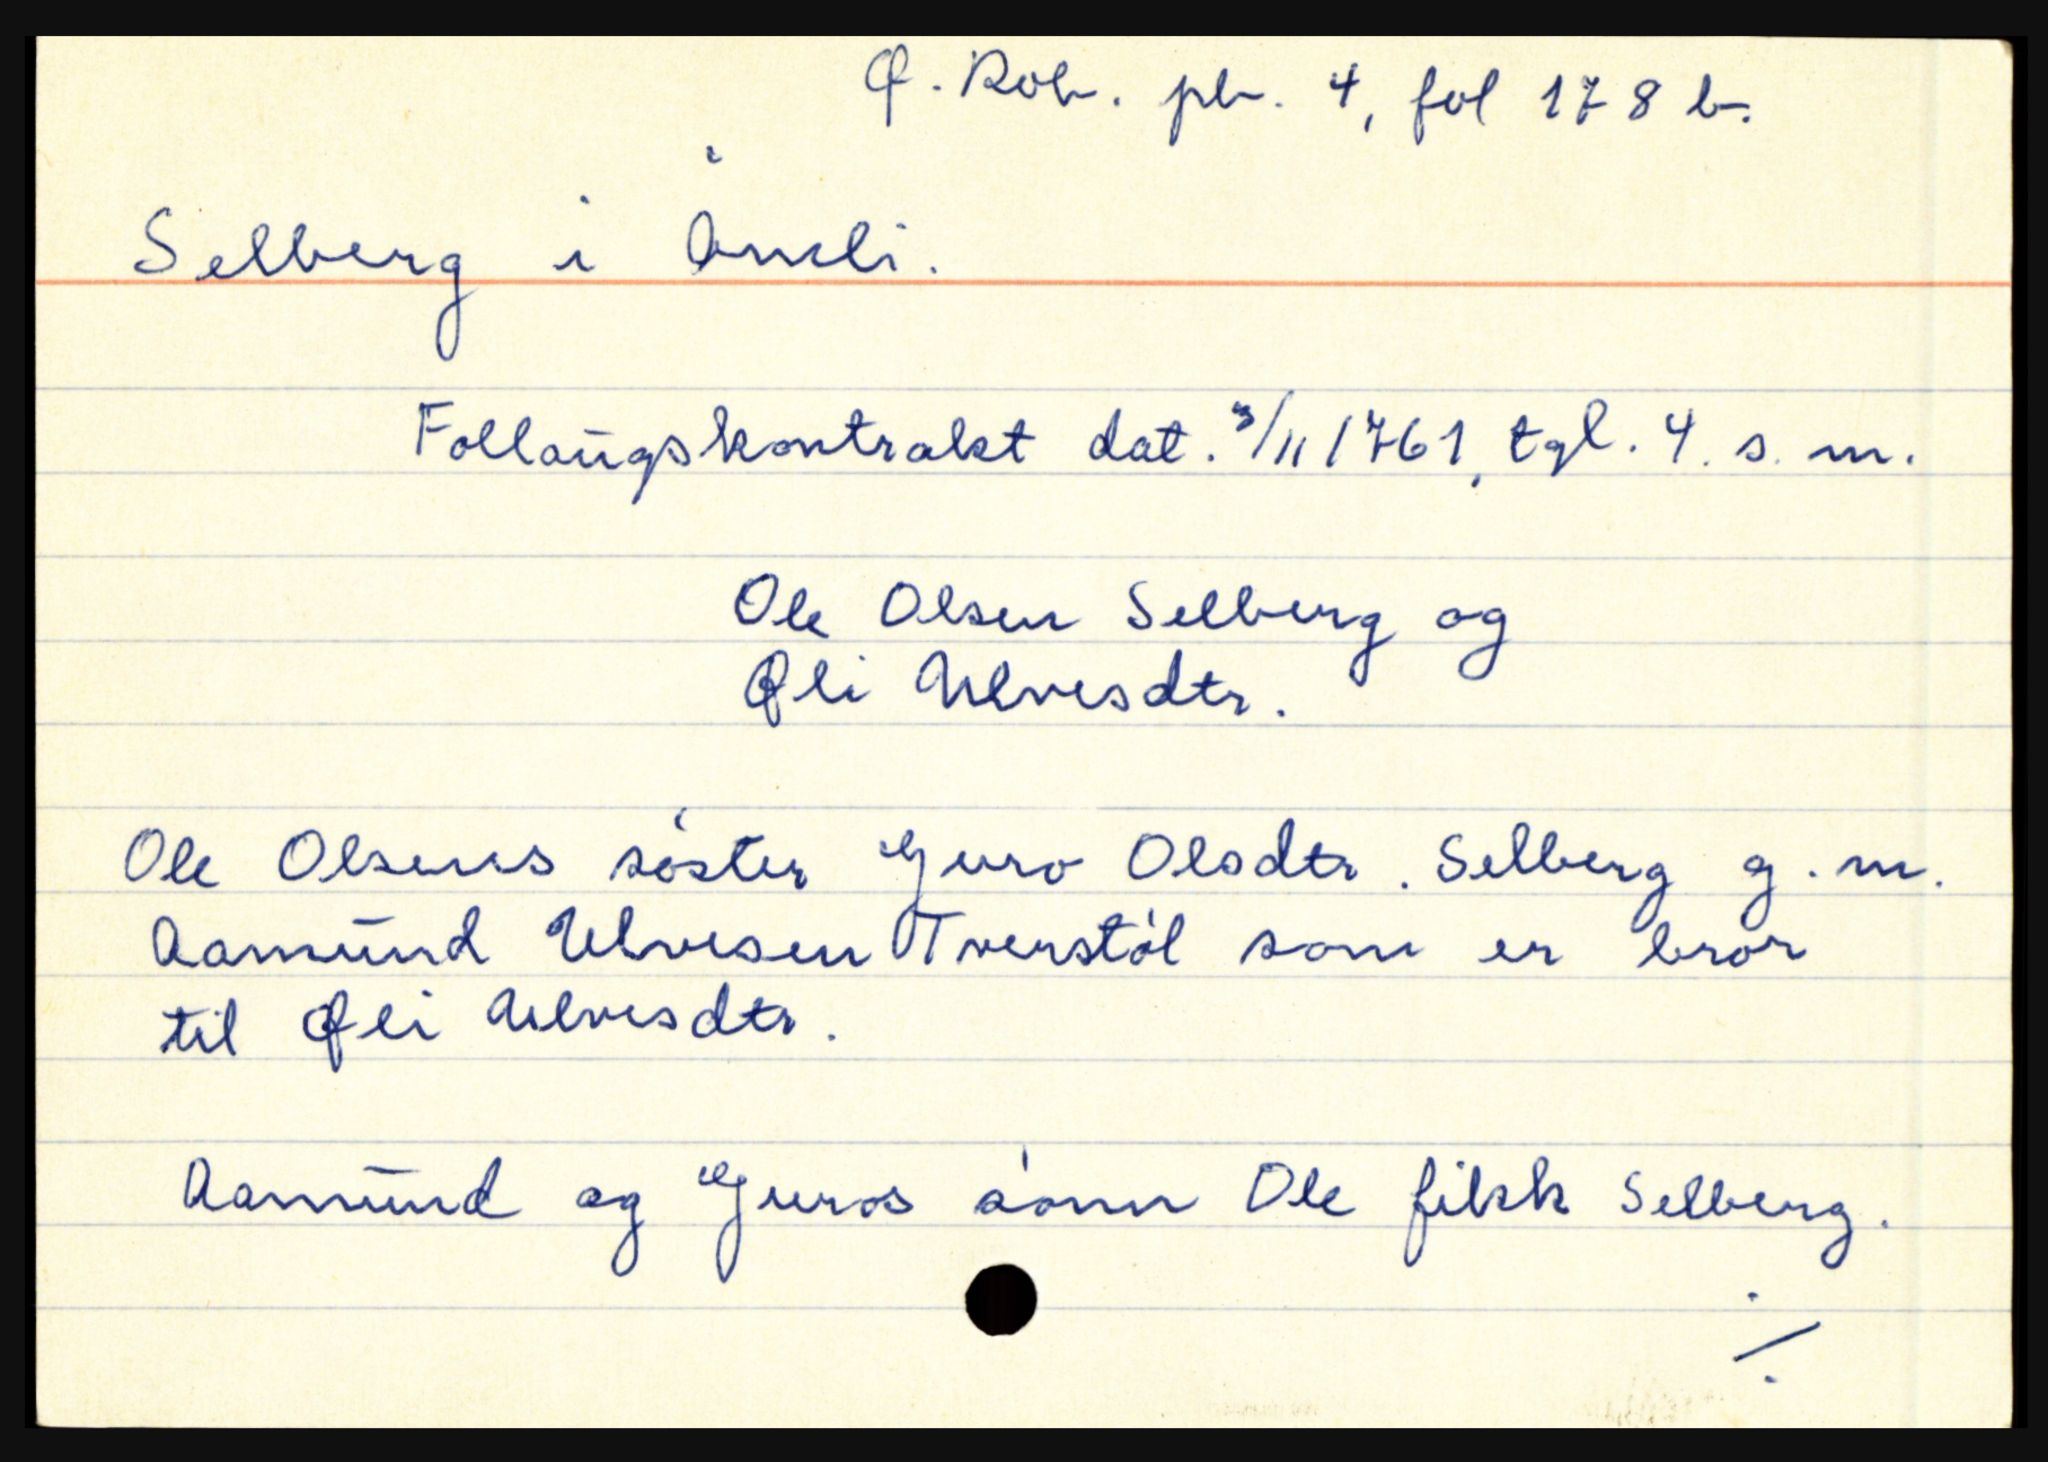 Ø. Rob. pb. 4, fol 178 b.
Selberg i Åmli.
Follaugskontrakt dat. 3/11 1761, tgl. 4. s. m.
Ole Olsen Selberg og
Øli Ulvesdtr.
Ole Olsens søster Guro Olsdtr. Selberg g. m.
Aamund Ulvesen Tverstøl som er bror
til Øli Ulvesdtr.
Aamund og Guros sønn Ole fikk Selberg.
./.